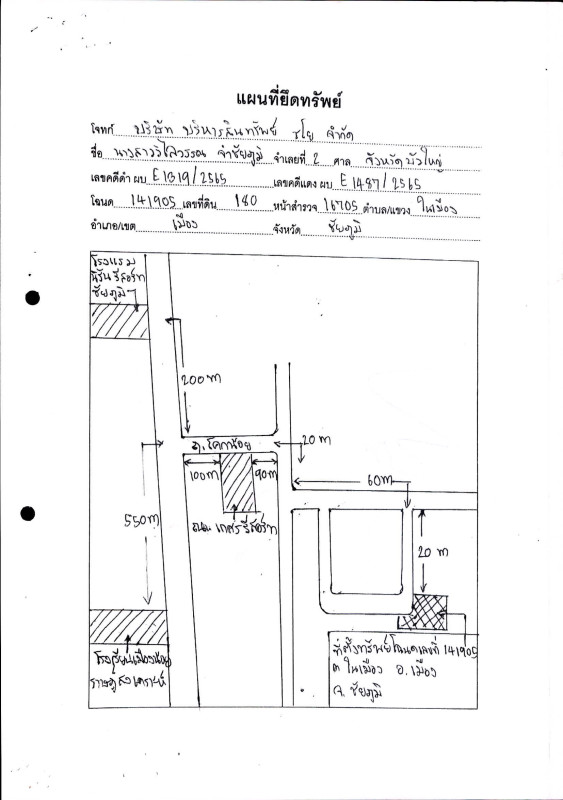 แผนที่ยึดทรัพย์
โจทก์ บริษัท บริหารสินทรัพย์ ชโย จำกัด
ชื่อ นางสาววิไลวรรณ จำชัยภูมิ จำเลยที่ 2 ศาล จังหวัดบัวใหญ่
เลขคดีดำ ผบ E1319/2565 เลขคดีแดง ผบ E1487/2565
โฉนด 141905 เลขที่ดิน 180 หน้าสำรวจ 16705 ตำบล/แขวง ในเมือง
อำเภอ/เขต เมือง จังหวัด ชัยภูมิ
โรงแรม
นิรันรีสอร์ท
ชัยภูมิ
200m
ถ.โคกน้อย
20m
100m
90m
60m
550m
ถนน เกสรรีสอร์ท
20m
โรงเรียนเมืองน้อย
ราษฎร์สงเคราะห์
ที่ตั้งทรัพย์โฉนดเลขที่ 141905
ต ในเมือง อ.เมือง
จ. ชัยภูมิ